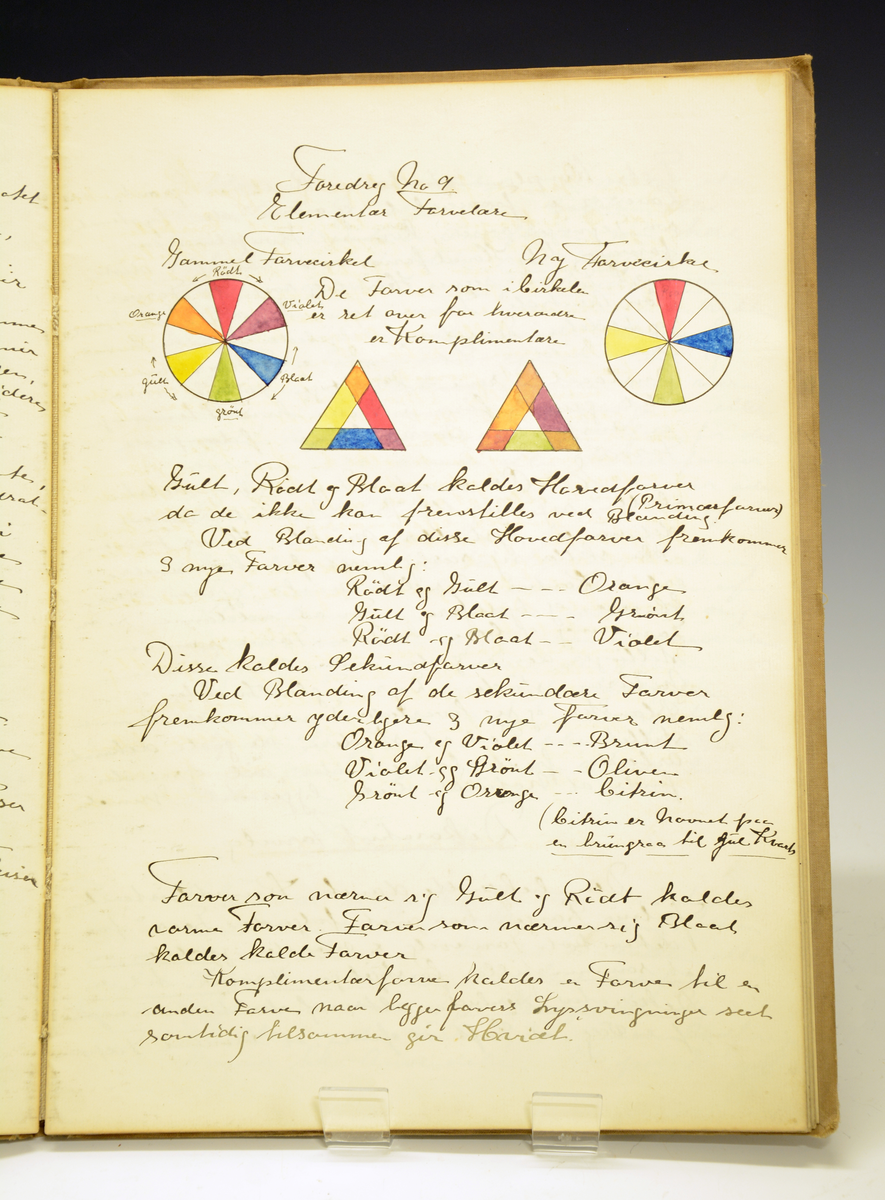 Foredrg No 9
Elementær Farvelære
Gammel Farvecirkel
Ny Farvecirkel
Rödt
Orange
Violet
gült
Blaat
grönt
De Farver som i Cirkelen
er ret over for hverandre
er Komplimentære
Gült, Rödt og Blaat kaldes Hovedfarver
(Primærfarver)
da de ikke kan fremstilles ved Blanding.
Ved Blanding af disse Hovedfarver fremkommer
3 nye Farver nemlig:
Rödt og Gült - - - Orange
Gült og Blaat - - - Grönt
Rödt og Blaat - - Violet
Disse kaldes Sekundfarver
Ved Blanding af de sekündære Farver
fremkommer yderligere 3 nye Farver nemlg:
Orange og Violet - - - Brunt
Violet og Grönt - - Oliven
Grönt og Orange - - - Citrin.
(Citrin er Navnet paa
en brüngraa til gul Kvarts
Farver som nærmer sig Gült og Rödt kaldes
varme Farver. Farver som nærmer sig Blaat
kaldes kalde Farver
Komplimentærfarve kaldes en Farve til en
anden Farve naar begge favers Lyssvingninger seet
samtidig tilsammen gir Hvidt.